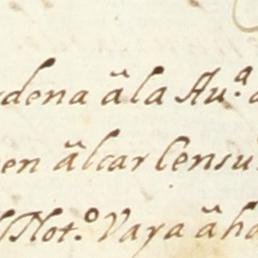 dena âla Au.ª
en âlcar Censu
Not.º Vaya âha